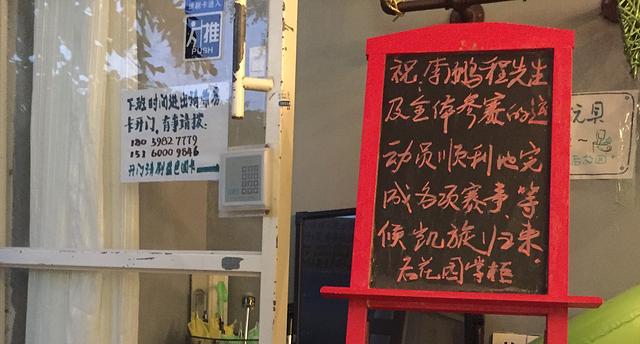 请刷卡进入
推
PUSH
卡开门,有事请拨:
180 5982 7779
151 6000 9846
祝:李鹏程先生
及全体参赛的运
动员顺利地完
成各项赛事,等
候凯旋归来.
石花园掌柜
玩具